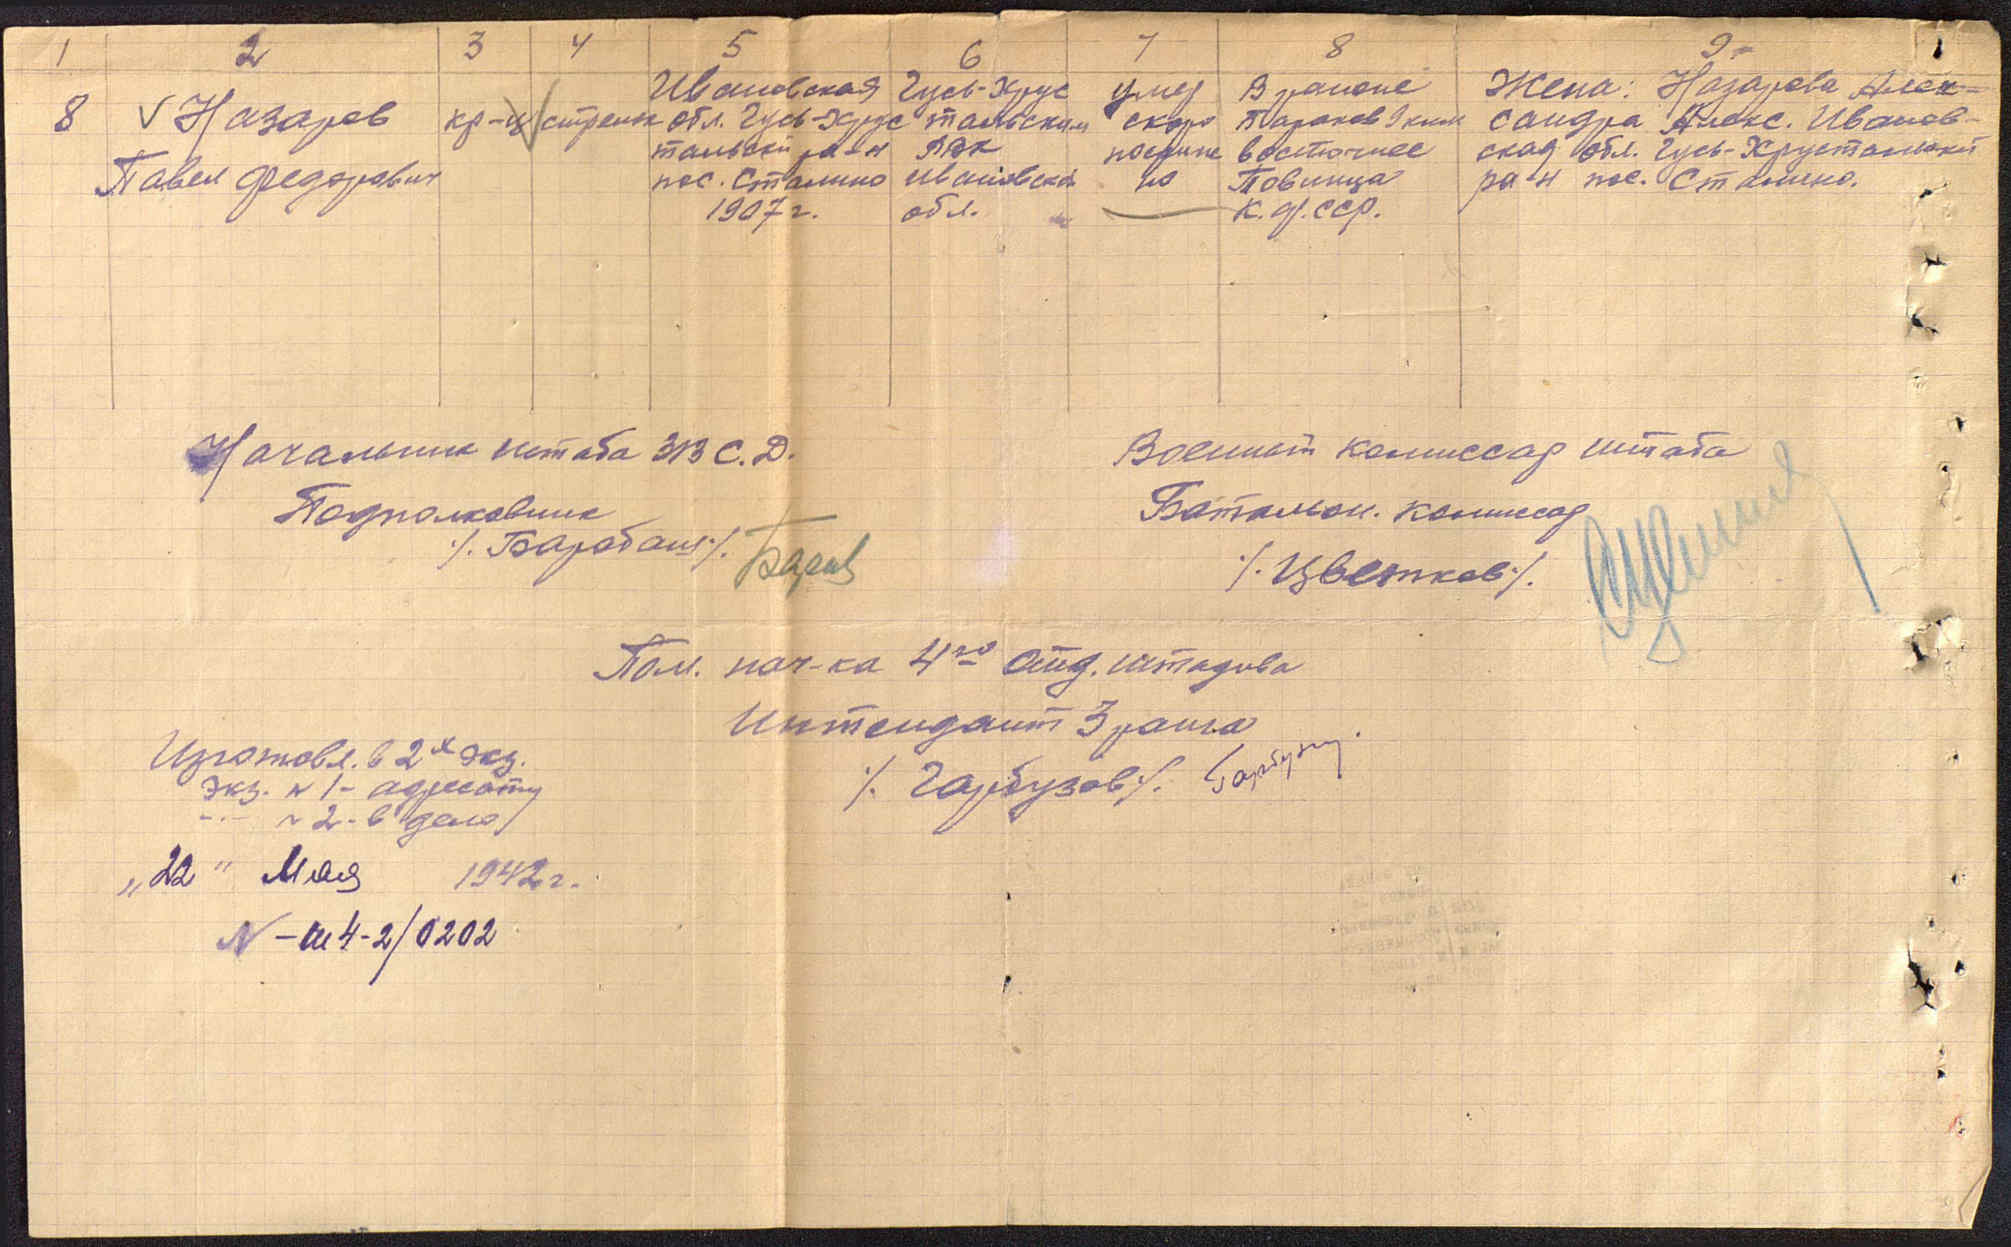 1 2 3 4 5 6 7 8 9
8 Назаров Павел Федорович
кр-ц
стрелок
Ивановская
обл. Гусь-Хрус
тальский р-н
пос. Сталино
1907 г.
Гусь-Хрус
тальским
РВК
Ивановской
обл.
умер
скоро
постижно
В районе
Тараков 9 клм
восточнее
Повинца
К.Ф.ССР.
Жена: Назарова Алек-
сандра Алекс. Иванов-
ская обл. Гусь-Хрустальский
ра-н пос. Сталино.
Начальник штаба 313 С.Д.
Подполковник
/. Барабаш /.
Военный комиссар штаба
Батальон. комиссар
/. Цветков /.
Пом. нач-ка 4го Отд. штадива
Интендант 3 ранга
/. Гарбузов /.
Изготовл. в 2х экз.
экз. № 1 - адресату
-"- № 2 - в дело
"22" Мая 1942 г.
N -ш4-2/0202